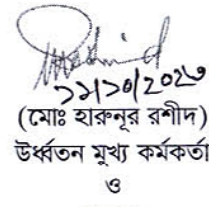 ১১/১০/২০২৩
(মোঃ হারুনূর রশীদ)
উর্ধ্বতন মুখ্য কর্মকর্তা
ও